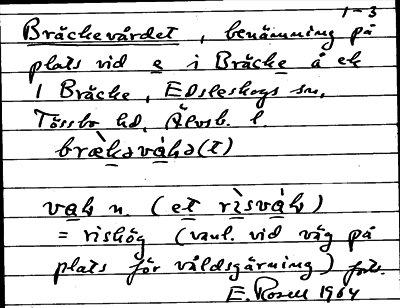 1-3
Bräckevårdet, benämning på
plats vid e i Bräcke å ek
1 Bräcke, Edsleskogs sn,
Tössbo hd, Älvsb. l.
brækəvàkə(t)
vak n. (et rìsvàk)
= rishög (vanl. vid väg på
plats för våldsgärning) forts.
E. Rosell 1964